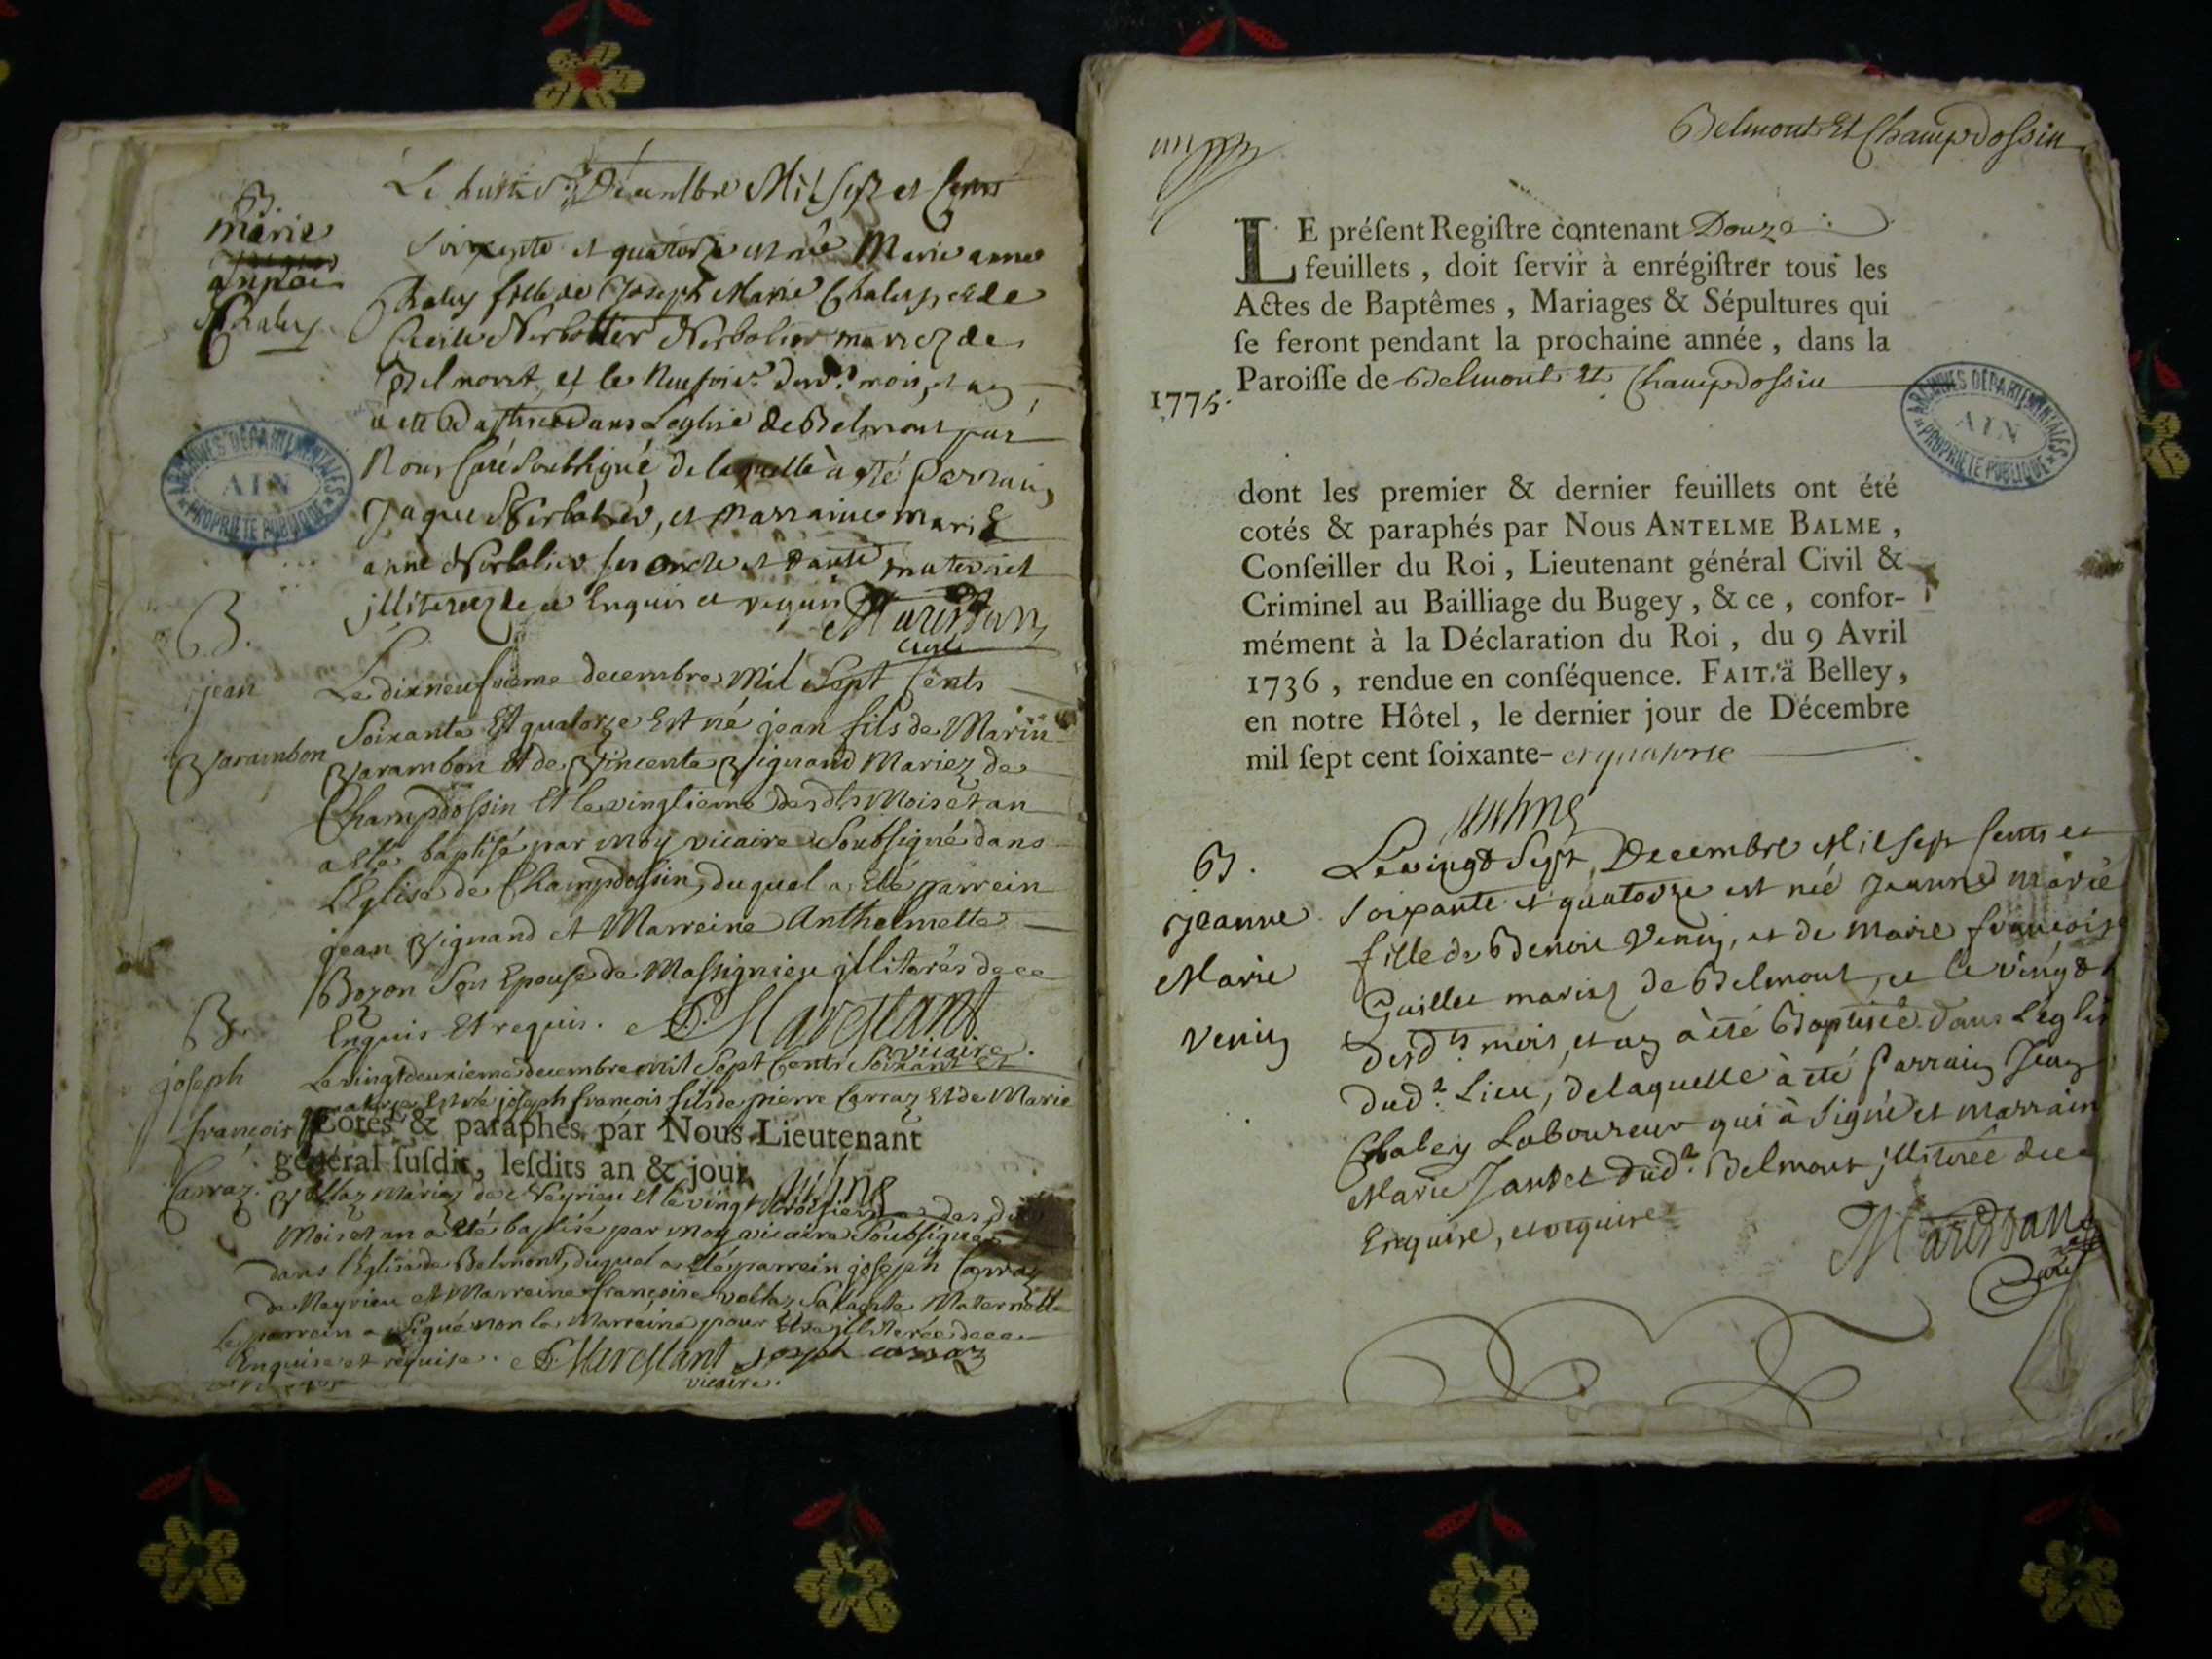 B.
Marie
anne
Chaley
Le huit.e Decembre Mil Sept et Cents
Soixante et quatorze est née Marie anne
Chaley fille de Joseph Marie Chaley, et de
Cecile Nerbollier mariez de
Belmont, et le neufvie. dud. mois, et an
a été Baptisée dans L'eglise de Belmont par
Nous Curé Soubsigné, de laquelle à été Parrain
Jaque Nerbolier, et marraine marie
anne Nerbolier ses oncle et tante maternel
illiterez de ce Enquis et requis
Curé
B.
jean
Varambon
Le dixneufvieme decembre Mil Sept Cents
Soixante Et quatorze Est né jean fils de Marin
Varambon et de Vincente Vignand Mariez de
Champdossin Et le vingtieme desdts Mois et an
a Eté baptisé par moy vicaire Soubsigné dans
l'Eglise de Champdossin, duquel a Eté parrein
jean Vignand et Marreine Anthelmette
Bozon Son Epouse de Massignieu illiterés de ce
Enquis Et requis.
vicaire.
B.
joseph
françois
Carraz.
Le vingtdeuxieme decembre mil Sept Cents Soixant et
quatorze Est né joseph françois fils de pierre Carraz Et de Marie
Cotés & paraphés par Nous Lieutenant
général ſuſdit, leſdits an & jour.
Vollaz Mariez de Neyrieu et le vingt troisieme des dts
Mois et an a Eté baptisé par moy vicaire Soubsigné
dans l'Eglise de Belmont, duquel a Eté parrein joseph Carraz
de Neyrieu et Marreine françoise vollaz Sa tante Maternelle
le parrein a Signé non la Marreine pour Etre illiterée de ce
Enquise et requise. joseph carraz
vicaire.
Belmont Et Champdossin
LE préſent Regiſtre contenant Douze
feuillets, doit ſervir à enrégiſtrer tous les
Actes de Baptêmes, Mariages & Sépultures qui
ſe feront pendant la prochaine année, dans la
1775. Paroiſſe de Belmont Et Champdossin
dont les premier & dernier feuillets ont été
cotés & paraphés par Nous ANTELME BALME,
Conſeiller du Roi, Lieutenant général Civil &
Criminel au Bailliage du Bugey, & ce, confor-
mément à la Déclaration du Roi, du 9 Avril
1736, rendue en conſéquence. FAIT à Belley,
en notre Hôtel, le dernier jour de Décembre
mil ſept cent ſoixante- et quatorze
Balme
B.
jeanne
Marie
Veniy
Le vingt Sept Decembre Mil Sept Cents et
Soixante et quatorze est née Jeanne marie
fille de Benoit Veniy, et de marie françoise
Guillet mariez de Belmont, et le vingt
desdts mois, et an à été Baptisée dans L'eglis
dud. Lieu, de laquelle à été Parrain Jean
Chaley Laboureur qui à signé et marrain
Marie Jantet dud. Belmont illiterée de ce
Enquise, et requise
Curé
ARCHIVES DÉPARTEMENTALES
AIN
PROPRIÉTÉ PUBLIQUE
ARCHIVES DÉPARTEMENTALES
AIN
PROPRIÉTÉ PUBLIQUE